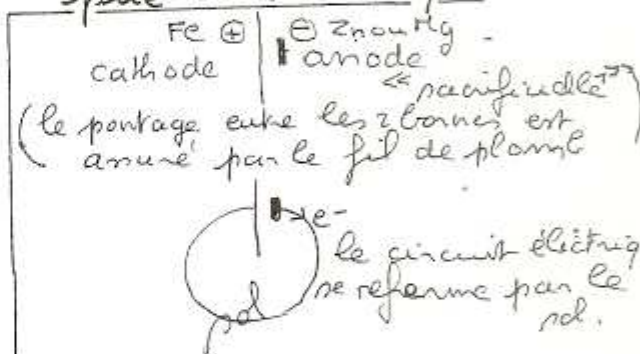 Fe ⊕ ⊖ Zn ou Mg
cathode anode
« sacrificielle »
(le pontage entre les 2 bornes est
assuré par le fil de plomb)
e-
le circuit électriq
se referme par le
sol.
sol